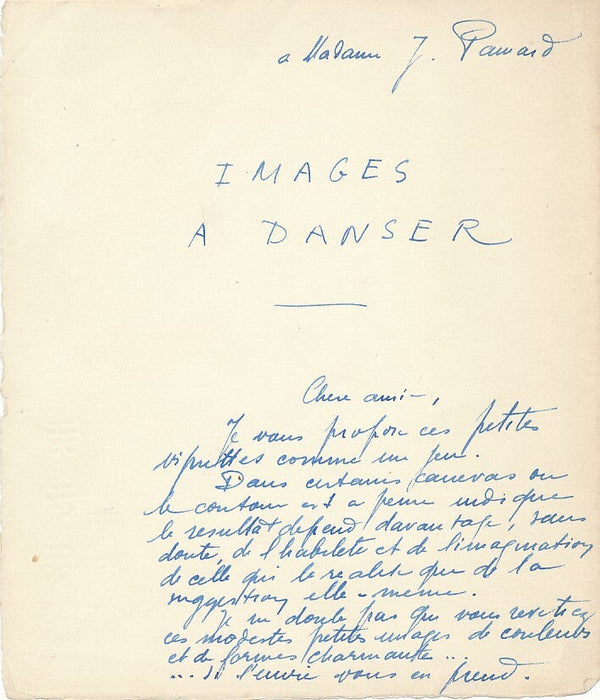 a Madame J. Pamard
IMAGES
A DANSER
Chere amie,
Je vous propose ces petites
vignettes comme un jeu.
Dans certains canevas ou
le contour est a peine indique
le resultat depend davantage, sans
doute, de l'habilete et de l'imagination
de celle qui le realise que de la
suggestion elle-meme.
Je ne doute pas que vous revetiez
ces modestes petites images de couleurs
et de formes charmantes...
... si l'envie vous en prend.